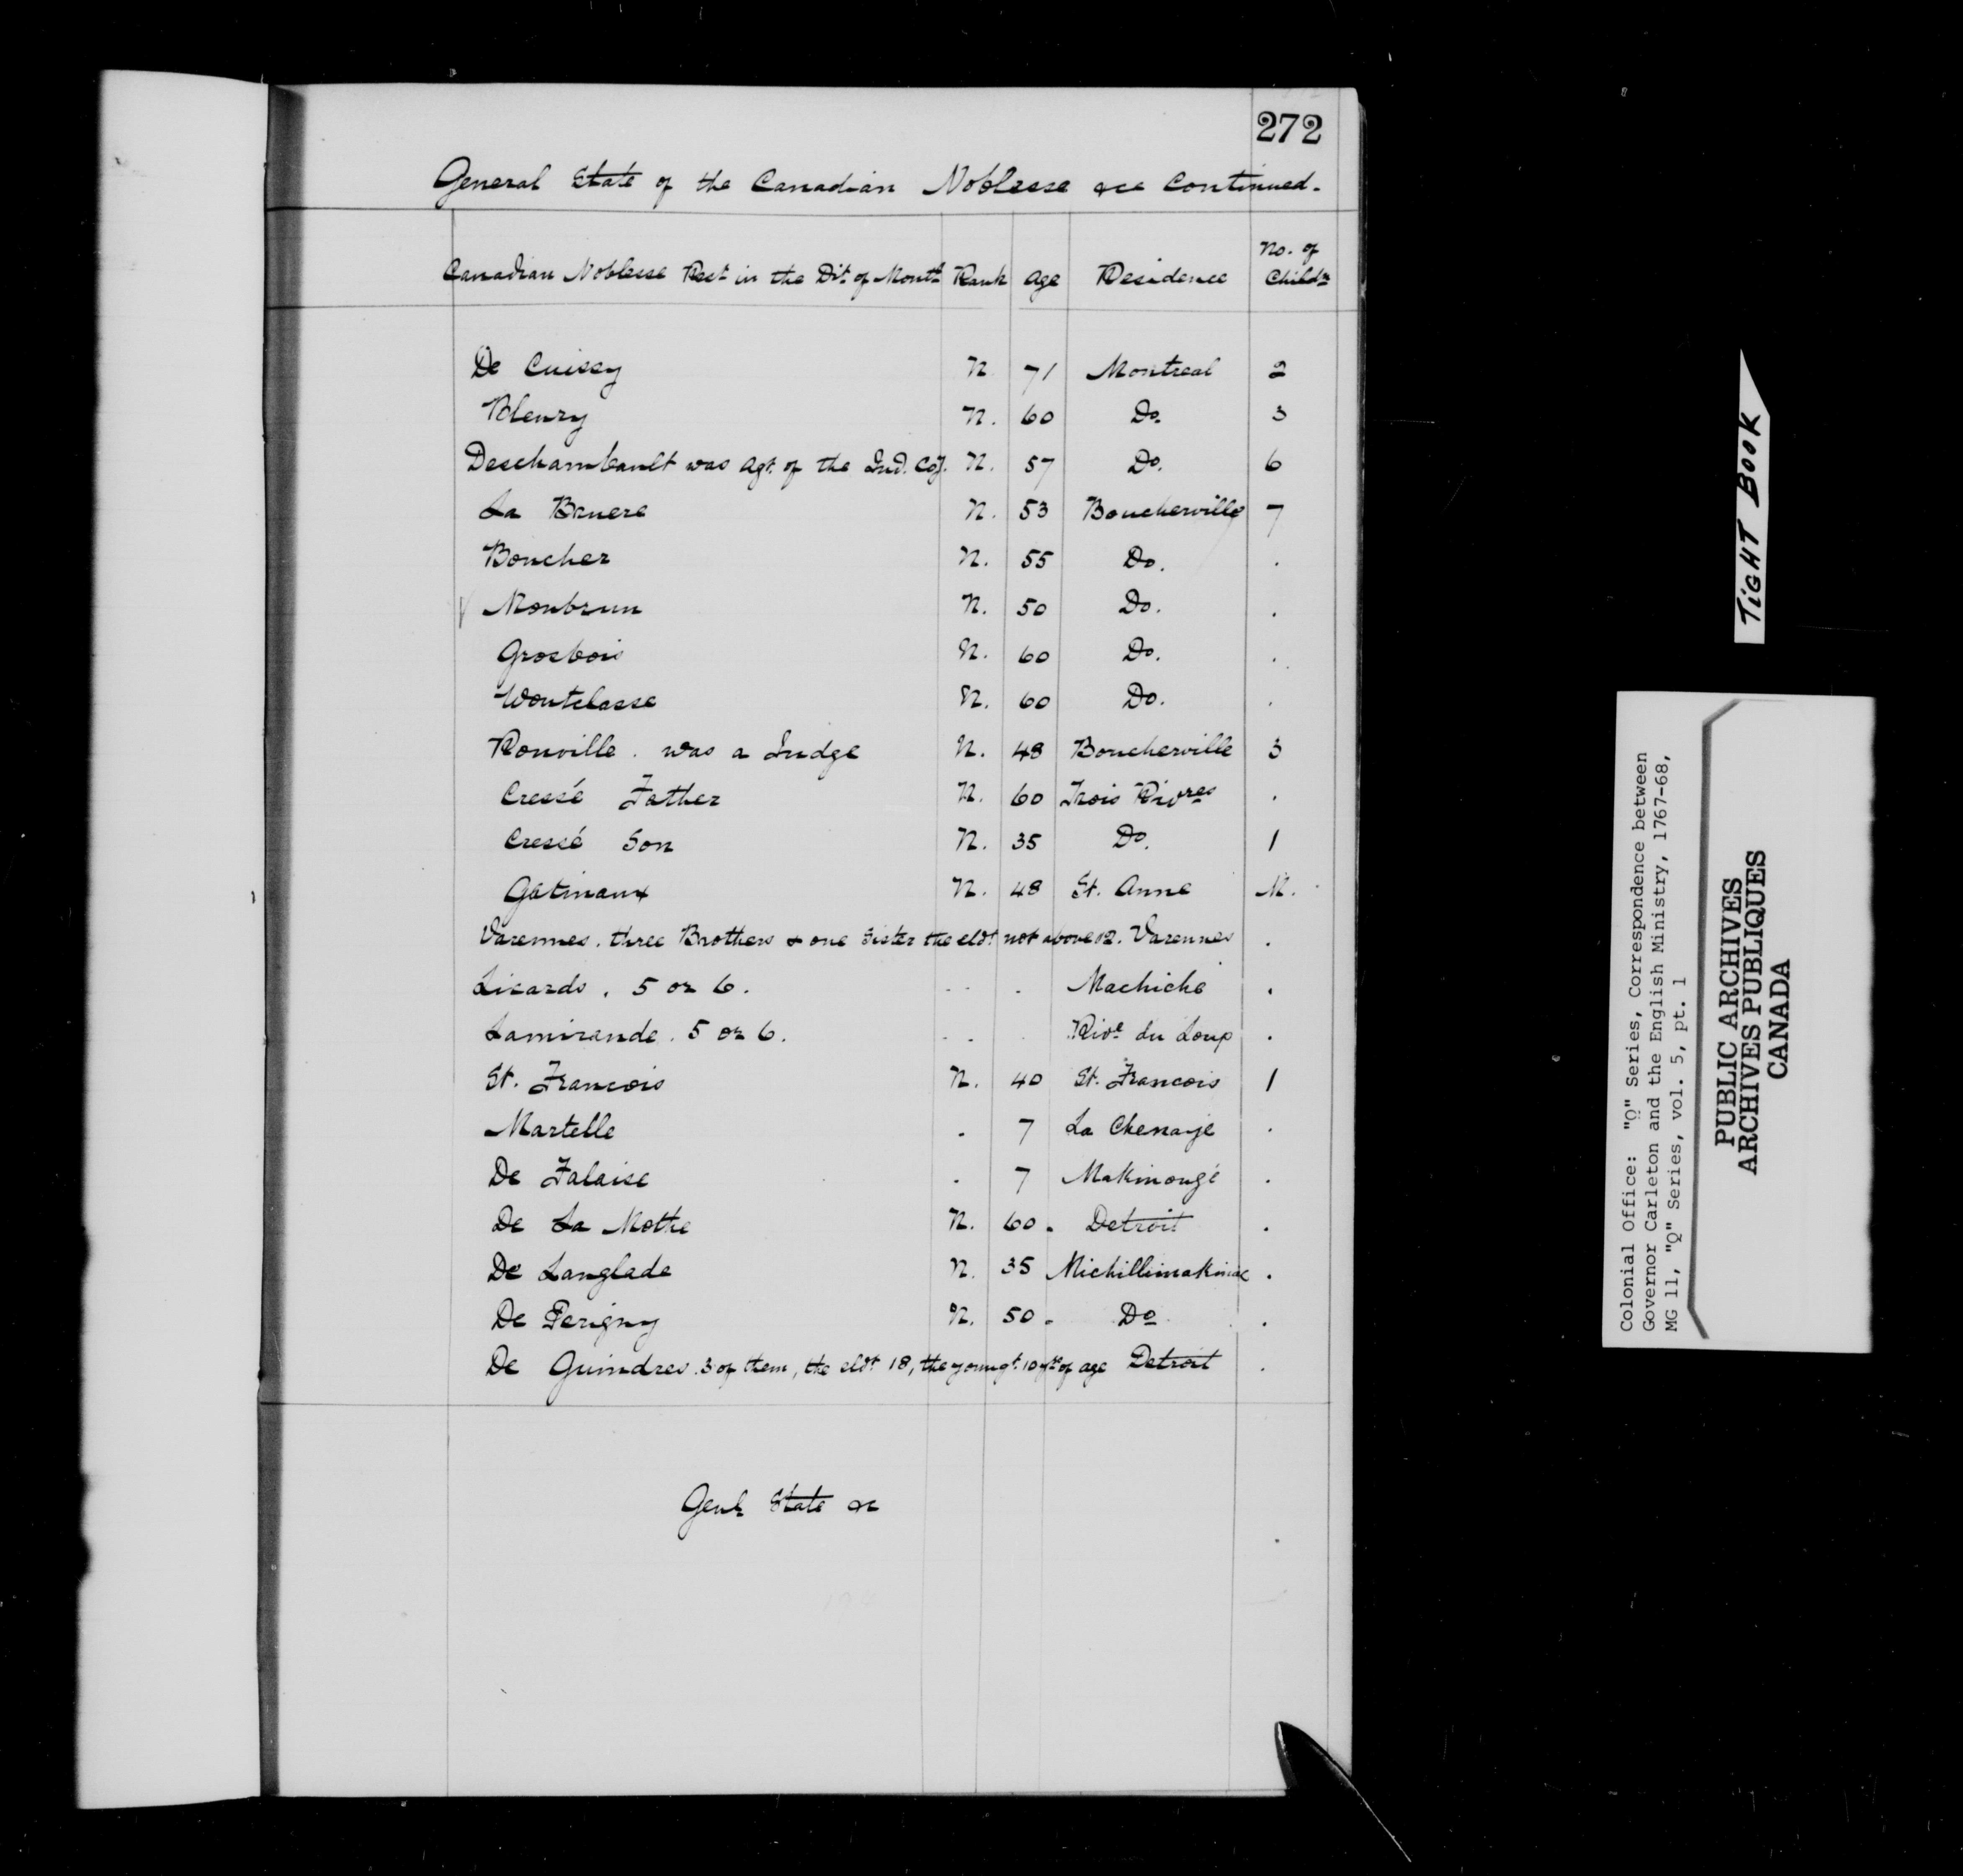 272
General State of the Canadian Noblesse &ce Continued.
Canadian Noblesse Rest in the Dit of Montl Rank Age Residence No. of Childn
De Cuisey N 71 Montreal 2
Bleury N. 60 Do. 3
Deschambault was Agt. of the Ind. Coy. N. 57 Do. 6
La Bruere N. 53 Boucherville 7
Boucher N. 55 Do. .
Monbrun N. 50 Do. .
Grosbois N. 60 Do. .
Montelasse N. 60 Do. .
Rouville . was a Judge N. 48 Boucherville 3
Cressé Father N. 60 Trois Rivres .
Cressé Son N. 35 Do. 1
Gatinaux N. 48 St. Anne M.
Varennes. three Brothers & one Sister the eldt not above 12. Varennes .
Lisards. 5 or 6. . . . Machiche .
Lamirande. 5 or 6. . . Rive du Loup .
St. Francois N. 40 St. Francois 1
Martelle . 7 La Chenaye .
De Falaise . 7 Makinougé .
De La Mothe N. 60. Detroit .
De Langlade N. 35 Michillimakinac .
De Perigny N. 50. Do .
De Guindres. 3 of them, the eldt 18, the youngt. 10 yrs of age Detroit .
Genl State &c
TIGHT BOOK
Colonial Office: "Q" Series, Correspondence between
Governor Carleton and the English Ministry, 1767-68,
MG 11, "Q" Series, vol. 5, pt. 1
PUBLIC ARCHIVES
ARCHIVES PUBLIQUES
CANADA